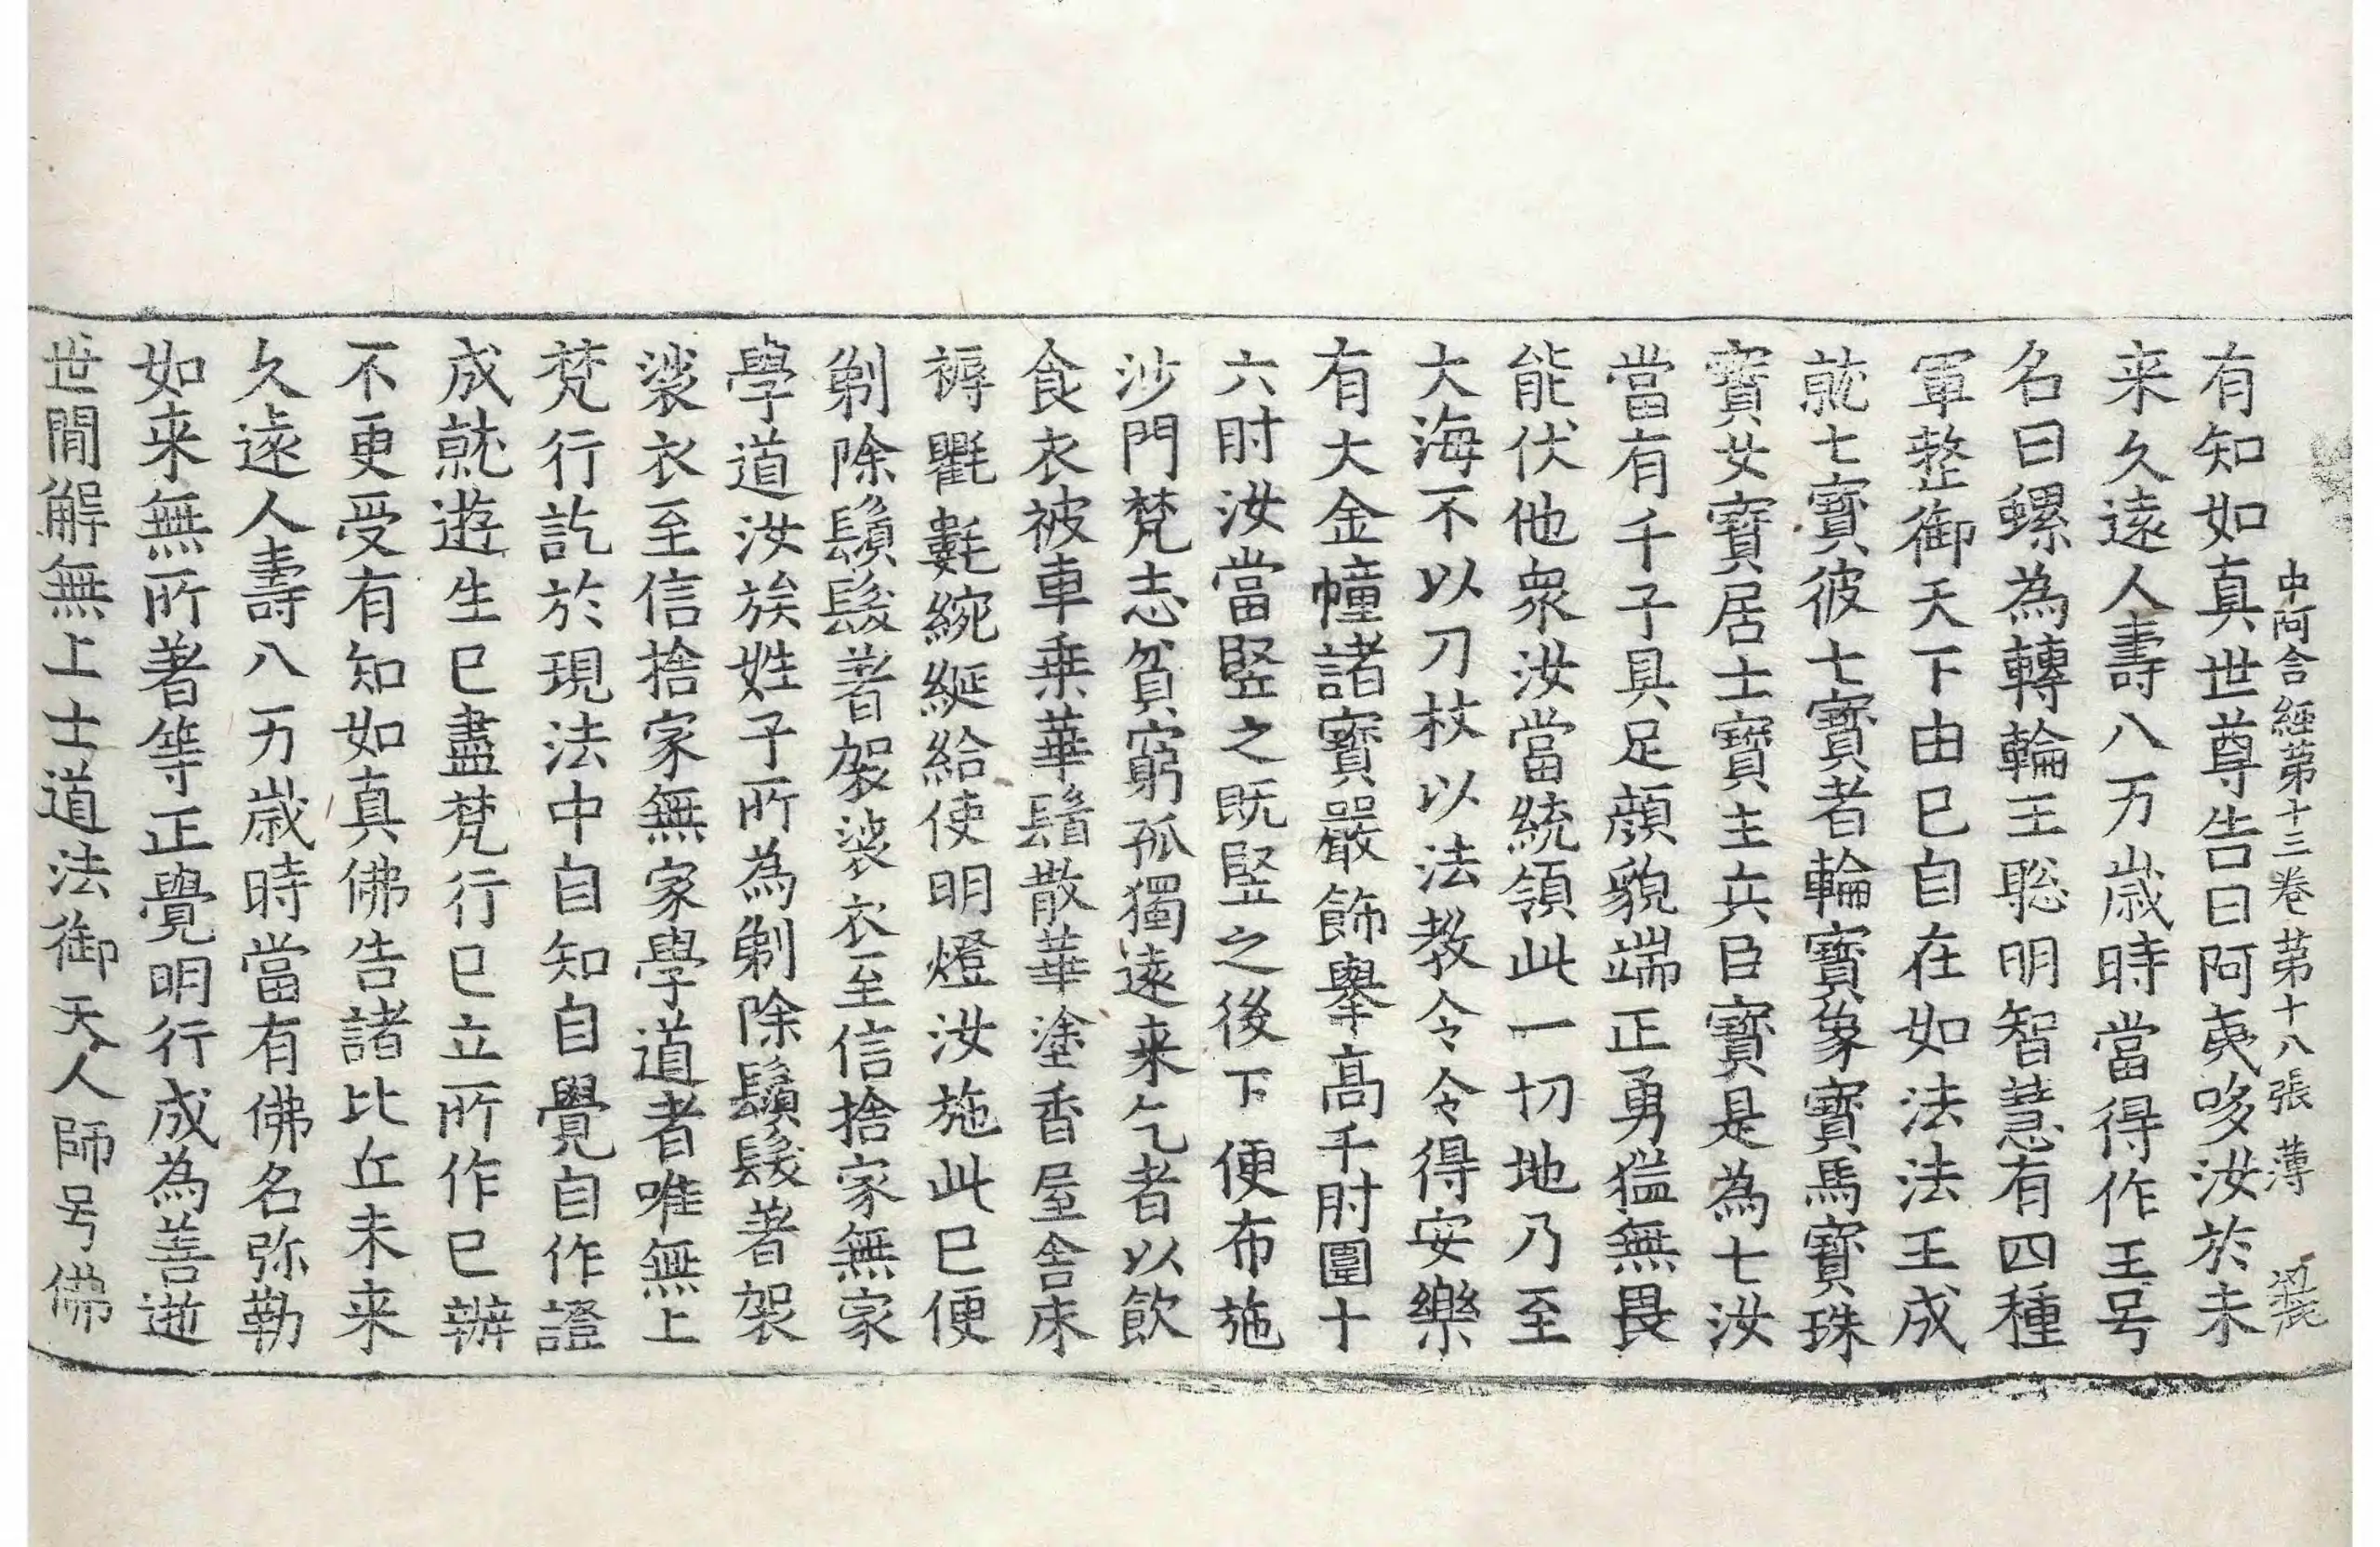 中阿含経第十三卷 第十八張 薄
有知如真世尊告曰阿夷哆汝於未
来久遠人壽八万歳時當得作王号
名曰螺為轉輪王聡明智慧有四種
軍整御天下由已自在如法法王成
就七寶彼七寶者輪寶象寶馬寶珠
寶女寶居士寶主兵臣寶是為七汝
當有千子具足顔貌端正勇猛無畏
能伏他衆汝當統領此一切地乃至
大海不以刀杖以法教令令得安樂
有大金幢諸寶嚴飾擧高千肘圍十
六肘汝當竪之既竪之後下便布施
沙門梵志貧窮孤獨遠来乞者以飲
食衣被車乗華鬘散華塗香屋舎床
褥氍㲣綩綖給使明燈汝施此已便
剃除鬚髮著袈裟衣至信捨家無家
學道汝族姓子所為剃除鬚髮著袈
裟衣至信捨家無家學道者唯無上
梵行訖於現法中自知自覺自作證
成就遊生已盡梵行已立所作已辦
不更受有知如真佛告諸比丘未来
久遠人壽八万歳時當有佛名弥勒
如来無所著等正覺明行成為善逝
世間解無上士道法御天人師号佛